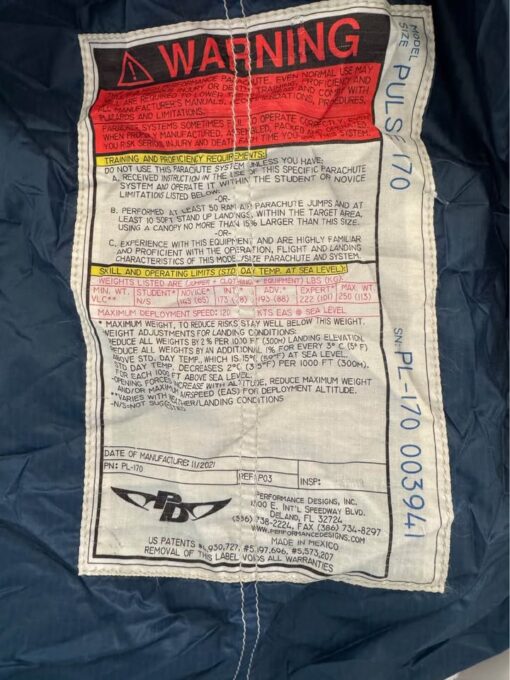 WARNING
PERFORMANCE PARACHUTE, EVEN NORMAL USE MAY
INJURY OR DEATH. TRAINING, PROFICIENCY AND
SKILL ARE REQUIRED TO LOWER RISKS. AND COMPLY WITH
ALL MANUFACTURER'S MANUALS, RECOMMENDATIONS, PROCEDURES,
HAZARDS AND LIMITATIONS.
PARACHUTE SYSTEMS SOMETIMES FAIL TO OPERATE CORRECTLY, EVEN
WHEN PROPERLY MANUFACTURED, ASSEMBLED, PACKED AND
YOU RISK SERIOUS INJURY AND DEATH EACH TIME YOU USE THIS SYSTEM.
TRAINING AND PROFICIENCY REQUIREMENTS:
DO NOT USE THIS PARACHUTE SYSTEM UNLESS YOU HAVE:
A. RECEIVED INSTRUCTION IN THE USE OF THIS SPECIFIC PARACHUTE
SYSTEM AND OPERATE IT WITHIN THE STUDENT OR NOVICE
LIMITATIONS LISTED BELOW.
-OR-
B. PERFORMED AT LEAST 50 RAM AIR PARACHUTE JUMPS AND AT
LEAST 10 SOFT STAND UP LANDINGS, WITHIN THE TARGET AREA,
USING A CANOPY NO MORE THAN 15% LARGER THAN THIS SIZE.
-OR-
C. EXPERIENCE WITH THIS EQUIPMENT AND ARE HIGHLY FAMILIAR
AND PROFICIENT WITH THE OPERATION, FLIGHT AND LANDING
CHARACTERISTICS OF THIS MODEL/SIZE PARACHUTE AND SYSTEM.
SKILL AND OPERATING LIMITS (STD. DAY TEMP. AT SEA LEVEL):
WEIGHTS LISTED ARE (JUMPER + CLOTHING + EQUIPMENT) LBS (KG)
MIN. WT. STUDENT* NOVICE* INT.* ADV.* EXPERT* MAX.
VLC** N/S 143 (65) 173 (78) 193 (88) 222 (101) 250 (113)
MAXIMUM DEPLOYMENT SPEED: 120 KTS EAS @ SEA LEVEL
* MAXIMUM WEIGHT, TO REDUCE RISKS STAY WELL BELOW THIS WEIGHT.
WEIGHT ADJUSTMENTS FOR LANDING CONDITIONS:
REDUCE ALL WEIGHTS BY 2% PER 1000 FT (300M) LANDING ELEVATION.
REDUCE ALL WEIGHTS BY AN ADDITIONAL 1% FOR EVERY 3° C (5° F)
ABOVE STD. DAY TEMP, WHICH IS 15°C (59°F) AT SEA LEVEL.
STD DAY TEMP. DECREASES 2°C (3.5°F) PER 1000 FT (300M).
FOR EACH 1000 FT ABOVE SEA LEVEL.
-OPENING FORCES INCREASE WITH ALTITUDE, REDUCE MAXIMUM WEIGHT
AND/OR MAXIMUM AIRSPEED (EAS) FOR DEPLOYMENT ALTITUDE.
**VARIES WITH WEATHER/LANDING CONDITIONS
-N/S=NOT SUGGESTED
DATE OF MANUFACTURE: 11/2021
PN: PL-170 REF: P03 INSP:
PD
PERFORMANCE DESIGNS, INC.
1300 E. INT'L SPEEDWAY BLVD.
DELAND, FL 32724
(386) 738-2224, FAX (386) 734-8297
WWW.PERFORMANCEDESIGNS.COM
MADE IN MEXICO
US PATENTS #4,930,727, #5,197,696, #5,573,207
REMOVAL OF THIS LABEL VOIDS ALL WARRANTIES
MODEL PULSE
SIZE 170
SN: PL-170 003941